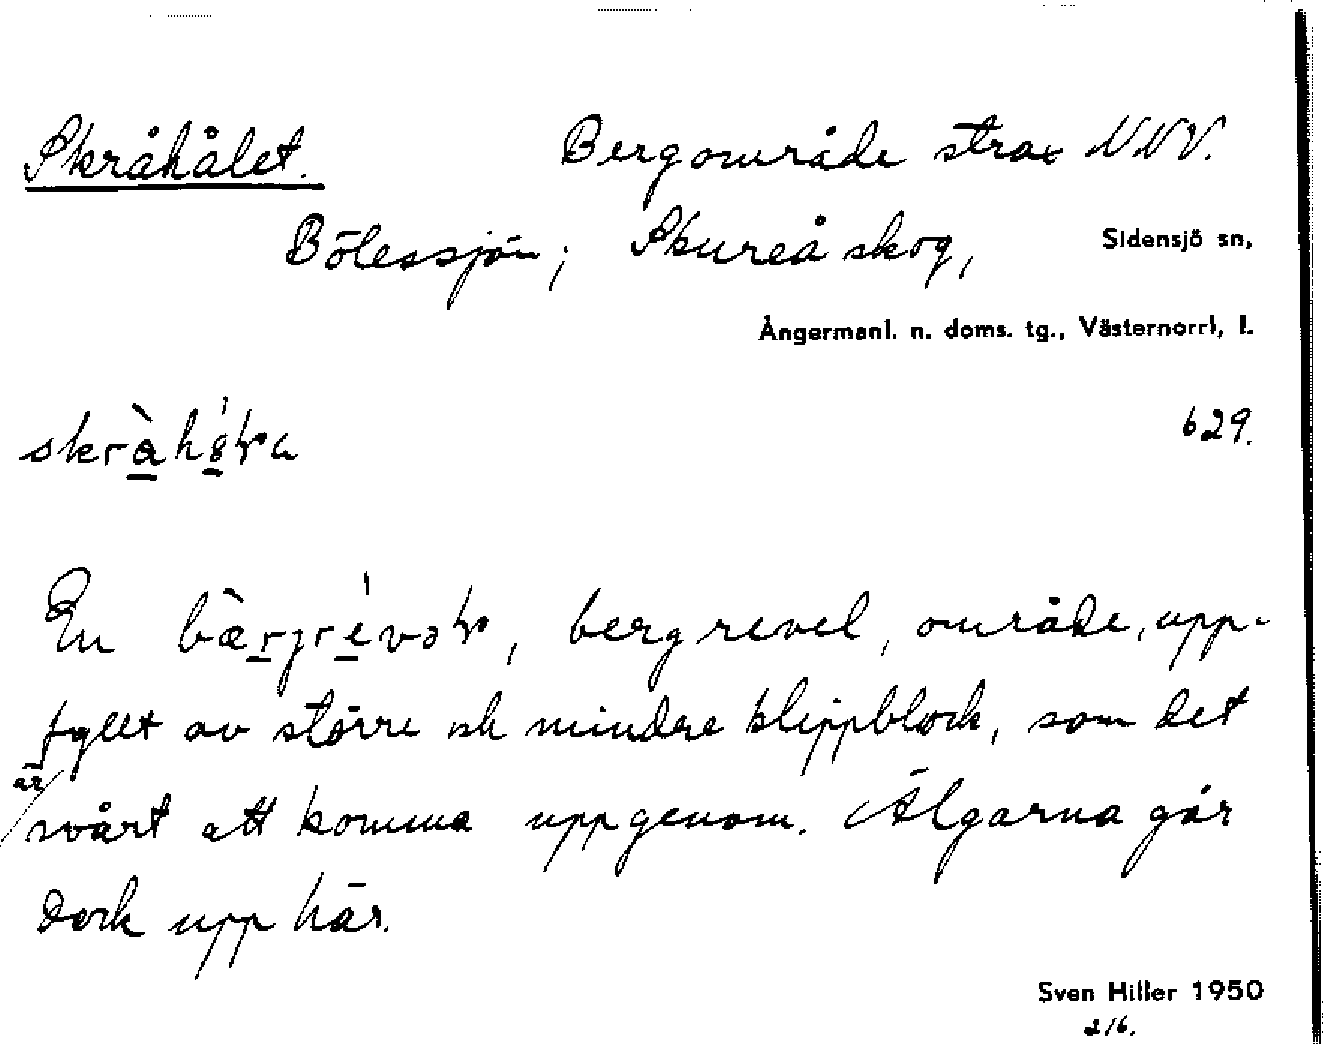 Skråhålet. Bergområde strax NNV.
Bölessjön; Skureå skog, Sidensjö sn,
Ångermanl. n. doms. tg., Västernorrl, l.
629.
En , bergrevel, område, upp-
fyllt av större och mindre klippblock, som det
är
svårt att komma uppgenom. Älgarna går
dock upp här.
Sven Hiller 1950
2/6.